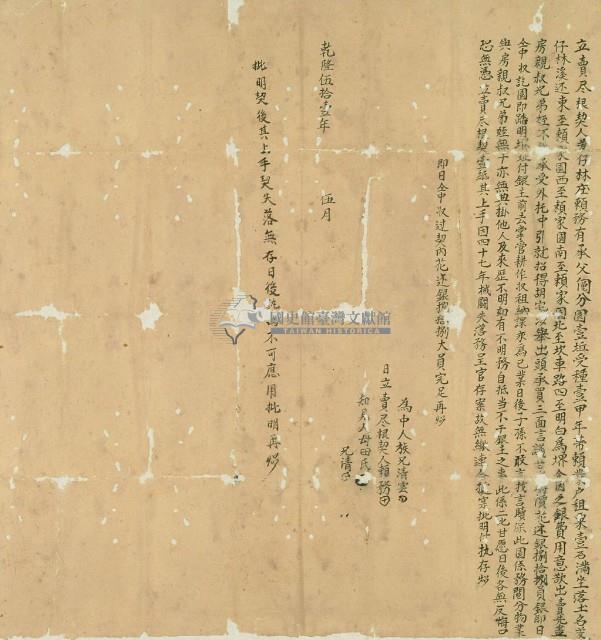 立賣尽根契人 仔林庄賴務有承父鬮分園壹坵受種壹甲年帶賴業户租粟壹石滿坐落土名茇
仔林溪还東至賴家園西至賴家園南至賴家園北至坎車路四至明白為界今因乏銀費用意欲出賣先盡
房親叔兄弟姪不 承受外托中引就招得胡宅 觀出頭承買三面言議 時價花边銀捌拾捌員銀即日
仝中収訖園即踏明坵址付銀主前去掌管耕作収租納課永為己業日後子孫不敢言找言贖保此園係務鬮分物業
與房親叔兄弟姪無干亦無典掛他人及來歷不明如有不明務自抵当不干銀主之事此係二比甘愿日後各無反悔口
恐無憑立賣尽根契壹紙其上手因四十七年械鬭失落務呈官存案故無繳連 批明付执存炤
即日仝中収过契內花边銀捌拾捌大員完足再炤
為中人族兄清雲
日立賣尽根契人賴務
知見人母田氏
兄清
乾隆伍拾壹年 伍月
批明契後其上手契失落無存日後 為不可應用批明再炤
國史館臺灣文獻館
TAIWAN HISTORICA